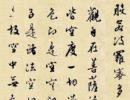 般若波羅蜜多
觀自在菩薩
皆空度一切
子是諸法空
故空中無